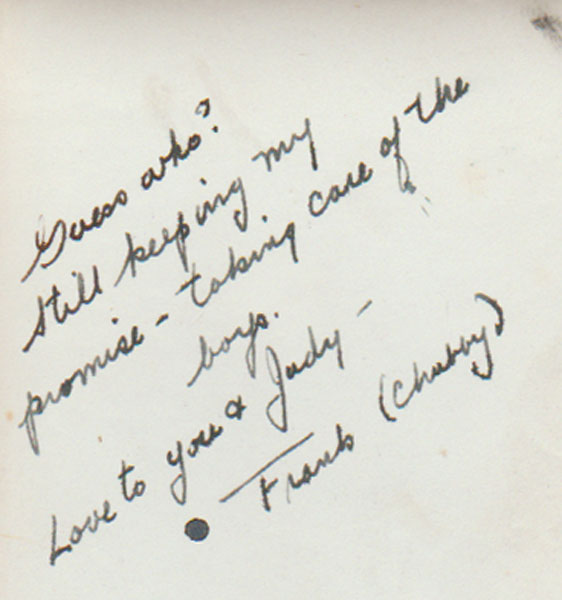 Guess who?
Still keeping my
promise - taking care of the
boys.
Love to you & Judy -
Frank (Chubby)